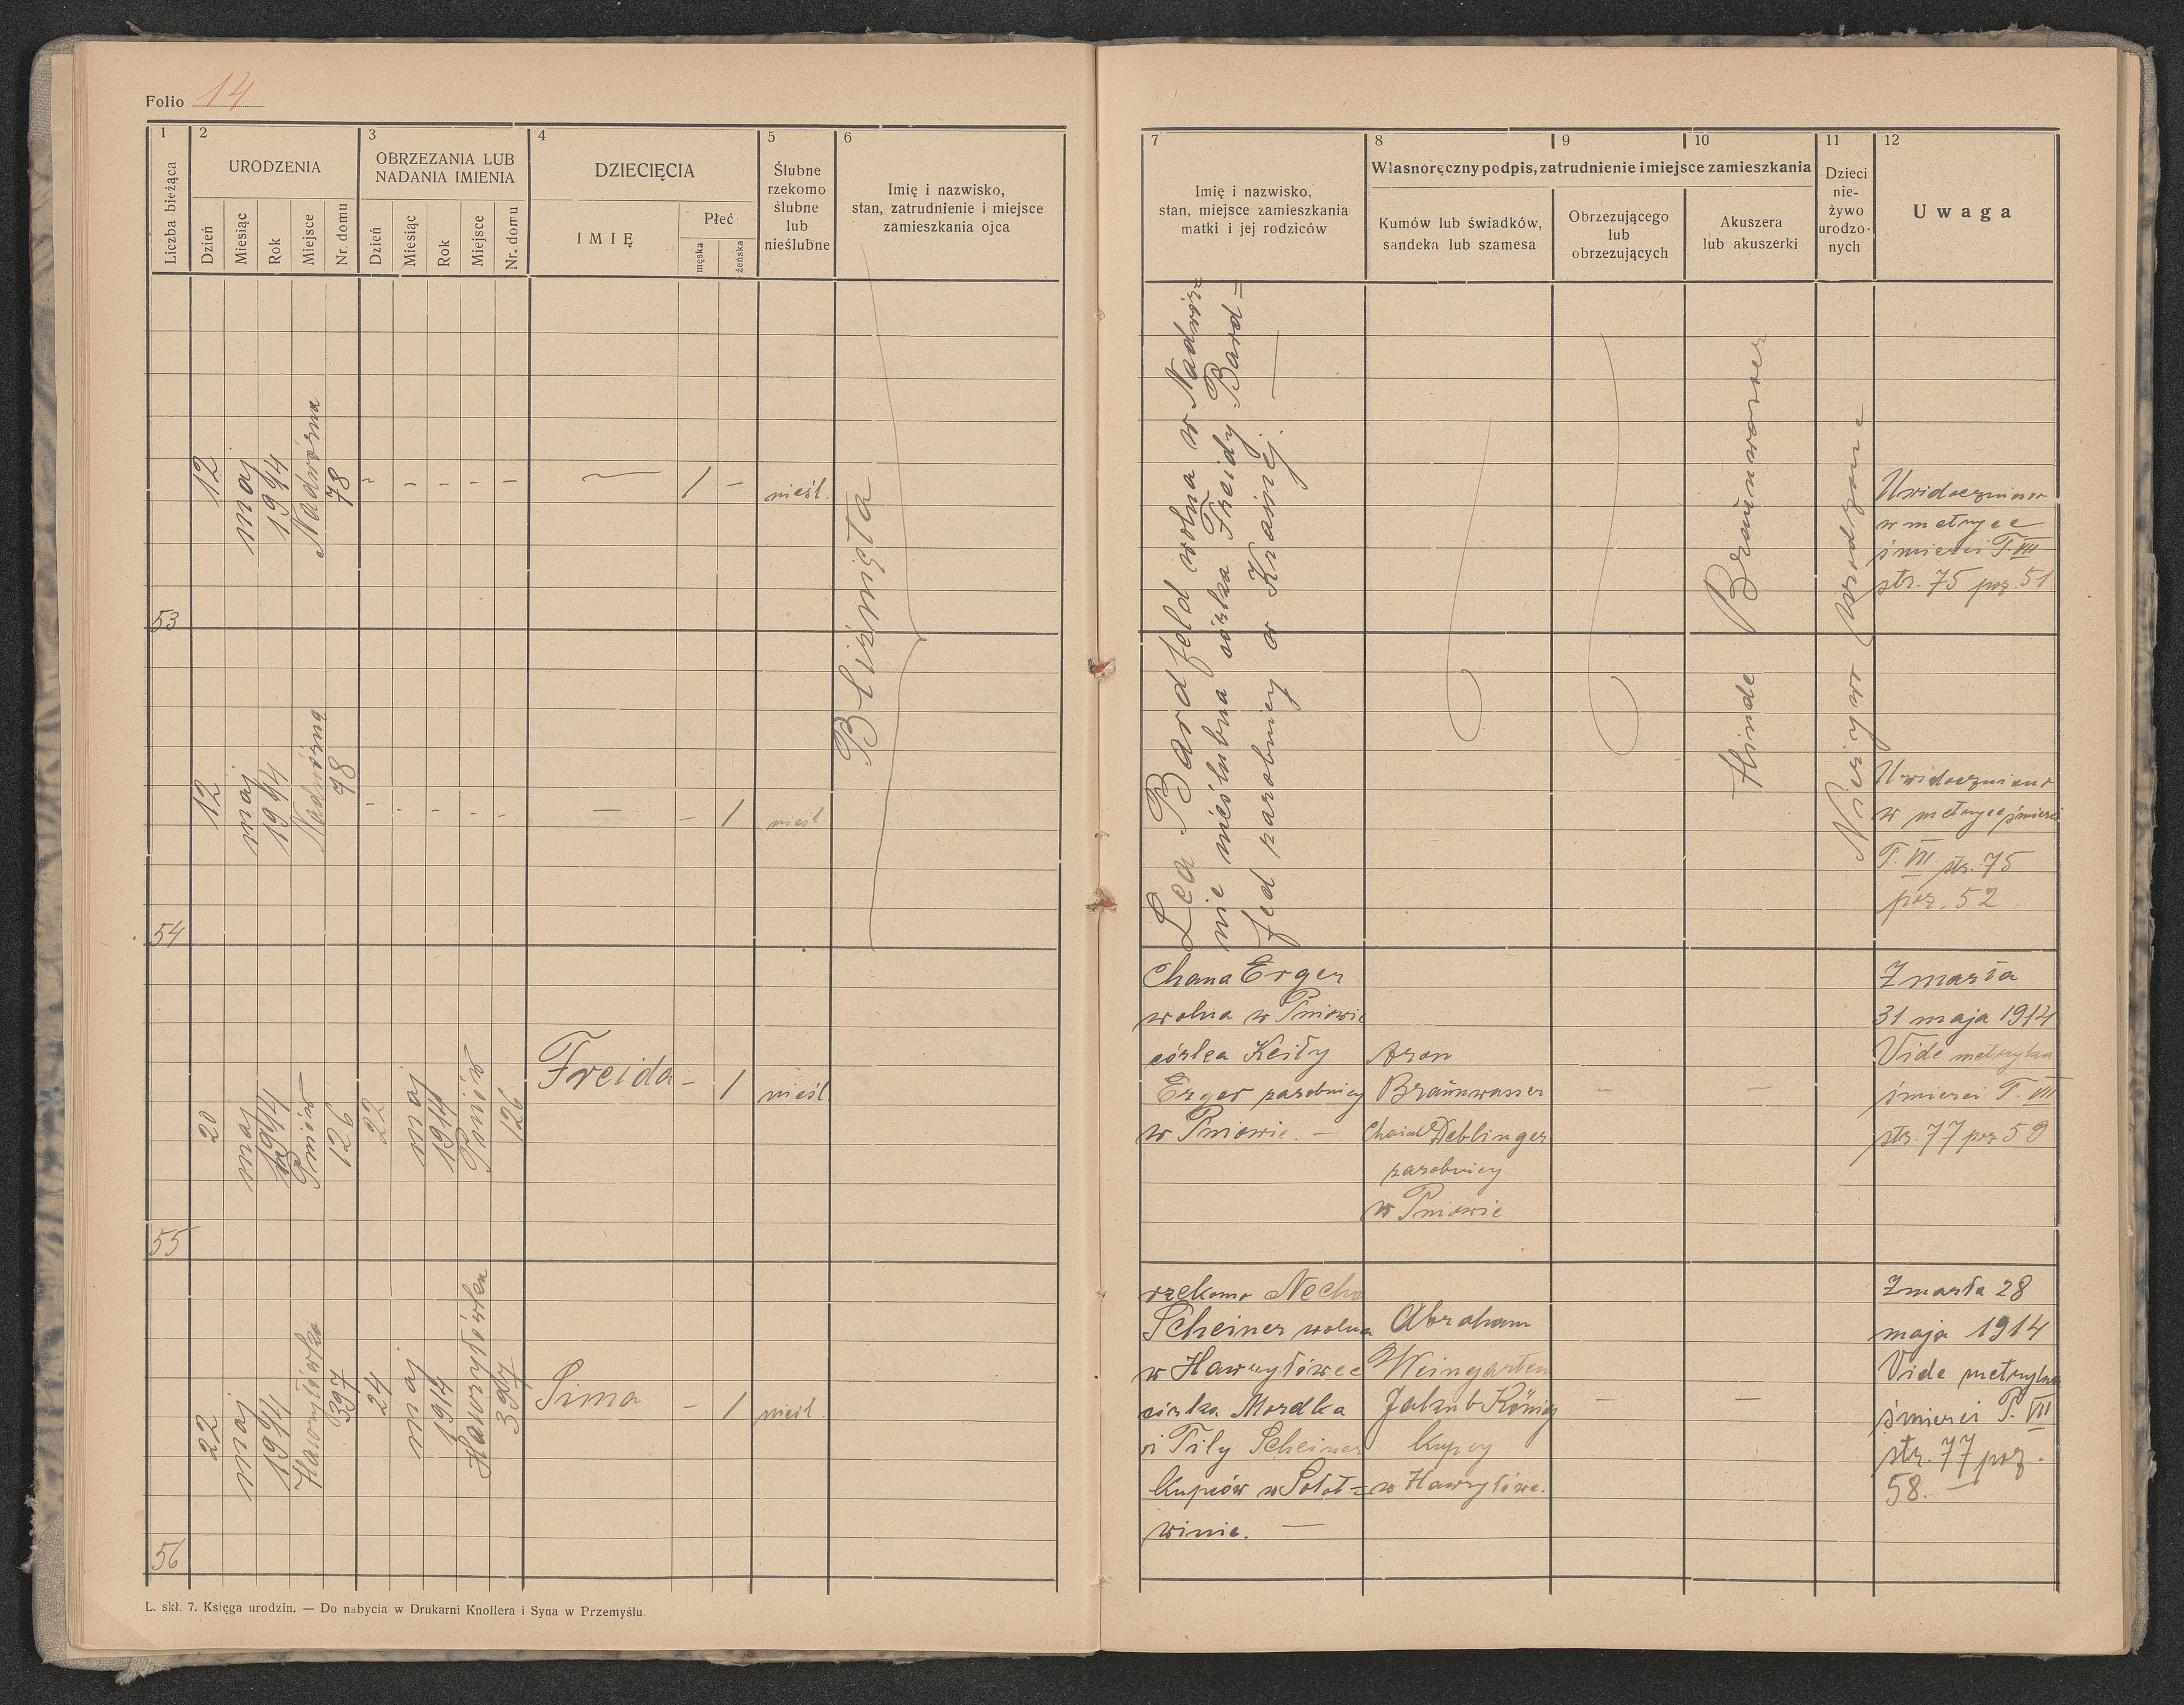 Folio 14
1
2
3
4
5
6
Liczba bieżąca
URODZENIA
OBRZEZANIA LUB
NADANIA IMIENIA
DZIECIĘCIA
Ślubne
rzekomo
ślubne
lub
nieślubne
Imię i nazwisko,
stan, zatrudnienie i miejsce
zamieszkania ojca
Dzień
Miesiąc
Rok
Miejsce
Nr. domu
Dzień
Miesiąc
Rok
Miejsce
Nr. domu
IMIĘ
Płeć
męska
żeńska
53
12
maj
1914
Nadwórna
78
- - - - -
—
1
-
nieśl.
Bliźnięta
54
12
maj
1914
Nadwórna
78
- - - - -
—
-
1
nieśl.
55
20
maj
1914
Pniów
126
22
maj
1914
Pniów
126
Freida
-
1
nieśl.
56
22
maj
1914
Hawryłówka
397
24
maj
1914
Hawryłówka
397
Sima
-
1
nieśl.
L. skł. 7. Księga urodzin. — Do nabycia w Drukarni Knollera i Syna w Przemyślu.
7
8
9
10
11
12
Imię i nazwisko,
stan, miejsce zamieszkania
matki i jej rodziców
Własnoręczny podpis, zatrudnienie i miejsce zamieszkania
Kumów lub świadków,
sandeka lub szamesa
Obrzezującego
lub
obrzezujących
Akuszera
lub akuszerki
Dzieci
nie-
żywo
urodzo-
nych
Uwaga
Lea Bardfeld wolna w Nadwór
nie nieślubna córka Freidy Bard=
fed zarobnicy w Krainej. —
Hinde Braunwasser
Nieżywo urodzone
Uwidoczniono
w metryce
śmierci T. VII
str. 75 poz. 51
Uwidoczniono
w metryce śmierci
T. VII str. 75
poz. 52
Chana Erger
wolna w Pniowie
córka Keiły
Erger zarobnicy
w Pniowie. —
Aron
Braunwasser
Chaim Deblinger
zarobnicy
w Pniowie
-
-
Zmarła
31 maja 1914
Vide metryka
śmierci T. VII
str. 77 poz 59
rzekomo Necha
Scheiner wolna
w Hawryłówce
córka Mordka
i Tily Scheiner
kupców w Sołot=
winie. —
Abraham
Weingarten
Jakub König
kupcy
w Hawryłówc.
-
-
Zmarła 28
maja 1914
Vide metryka
śmierci T. VII
str. 77 poz.
58. —